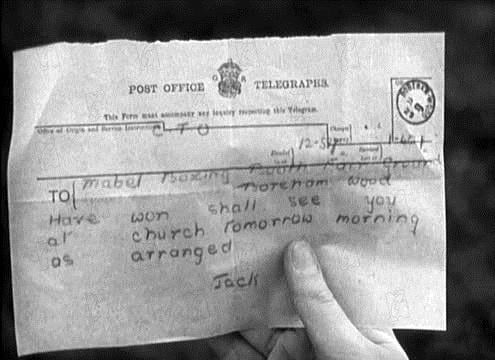 POST OFFICE TELEGRAPHS.
This Form must accompany any inquiry respecting this Telegram.
Office of Origin and Service Instructions
C T O
TO Mabel Boxing Booth Fair Ground
Boreham Wood
Have won shall see you
at church tomorrow morning
as arranged
Jack